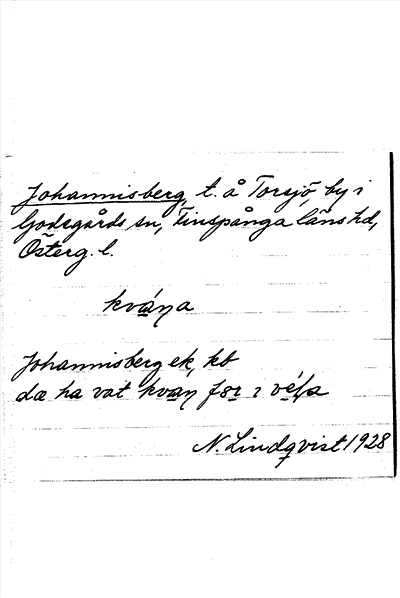 Johannisberg, t. å Torsjö, by i
Godegårds sn, Finspånga läns hd,
Österg. l.
kvá̱ṇa
Johannisberg ek, kb
dæ ha vat kva̱ṇ fɔr i
N. Lindqvist 1928